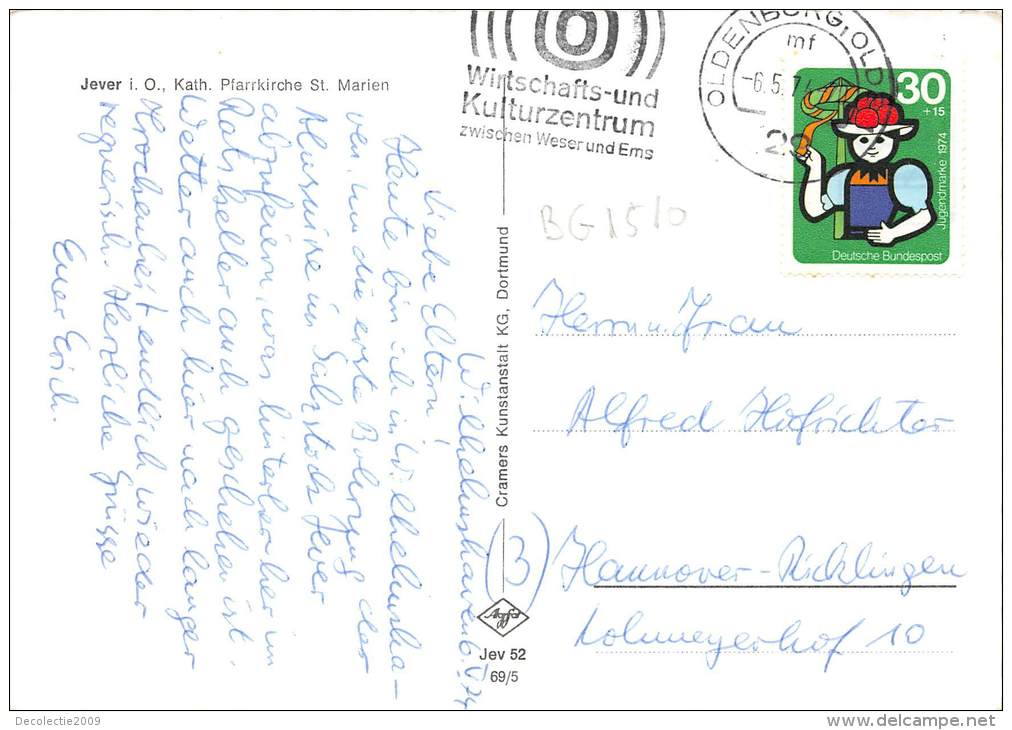 Jever i. O., Kath. Pfarrkirche St. Marien
Wirtschafts-und
Kulturzentrum
zwischen Weser und Ems
OLDENBURG, OLD
mf
-6.5.74
29
30
+15
Jugendmarke 1974
Deutsche Bundespost
BG 15/0
Wilhelmshaven 6.V.74
Liebe Eltern!
Heute bin ich in Wilhelmsha-
ven, um die erste Bohrung der
Alusuisse im Salzstock Jever
abzufeiern, was hinterher im
Ratskeller auch geschehen ist.
Wetter auch hier nach langer
Trockenheit endlich wieder
regnerisch. Herzliche Grüsse
Euer Erich.
Cramers Kunstanstalt KG, Dortmund
Herrn u. Frau
Alfred Hofrichter
(3) Hannover-Ricklingen
Lohmeyerhof 10
Agfa
Jev 52
69/5
Decolectie2009
www.delcampe.net